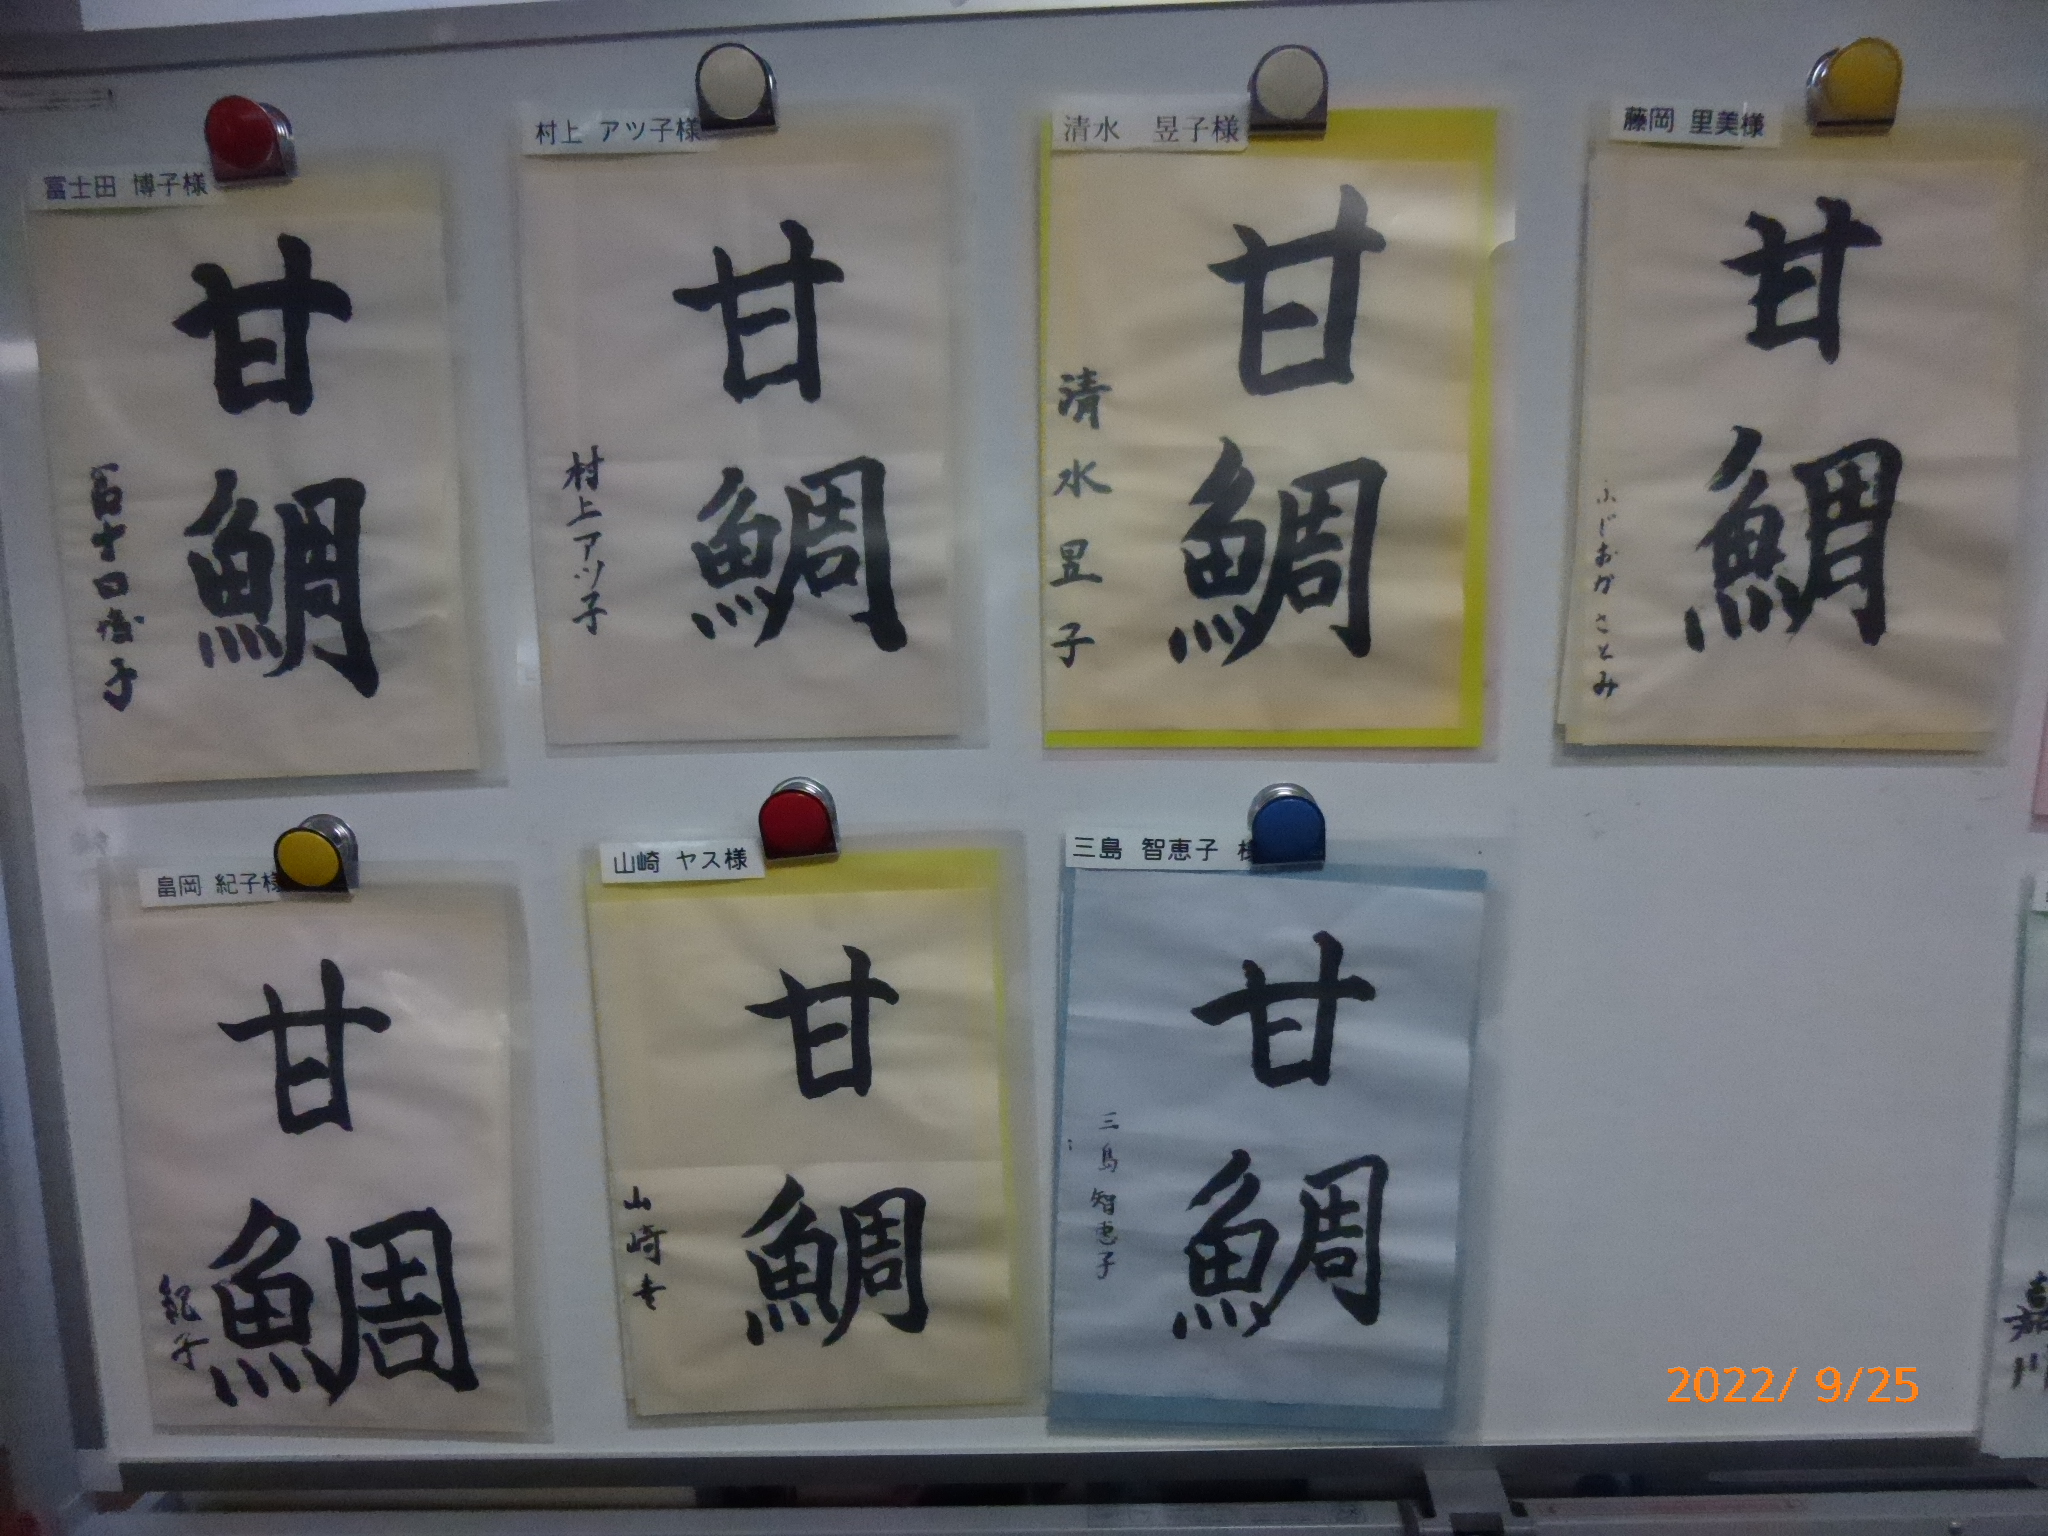 冨士田 博子様
甘鯛
村上 アツ子様
甘鯛
村上アツ子
清水 昱子様
甘鯛
清水昱子
藤岡 里美様
甘鯛
ふじおかさとみ
畠岡 紀子様
甘鯛
紀子
山崎 ヤス様
甘鯛
山崎
三島 智恵子 様
甘鯛
三島智恵子
2022/ 9/25